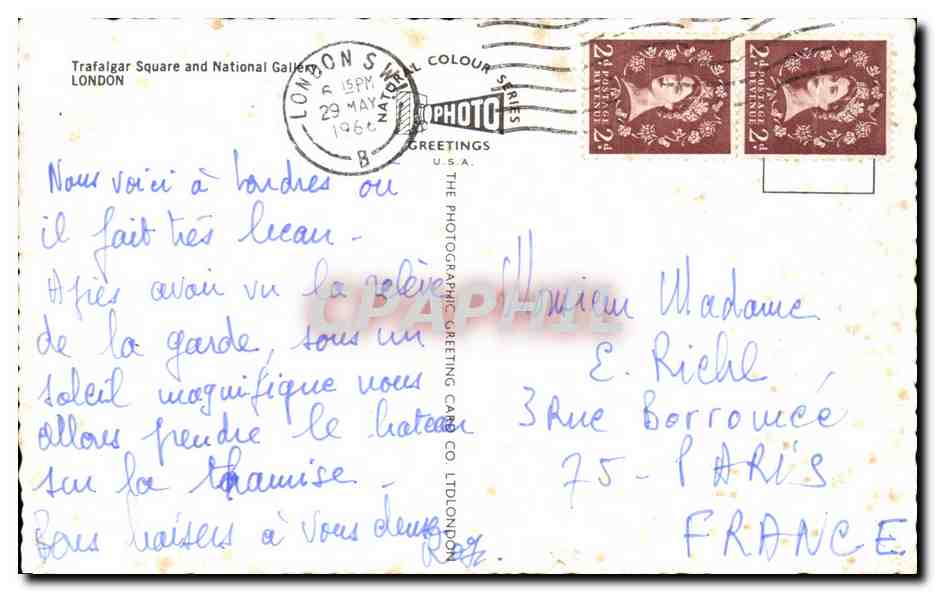 Trafalgar Square and National Gallery
LONDON
LONDON S.W.1
6 15 PM
29 MAY
196
B
NATURAL COLOUR SERIES
PHOTO
GREETINGS
U.S.A.
2d POSTAGE REVENUE 2d
2d POSTAGE REVENUE 2d
THE PHOTOGRAPHIC GREETING CARD CO. LTD LONDON
Nous voici à Londres ou
il fait très beau -
Après avoir vu la relève
de la garde, sous un
soleil magnifique nous
allons prendre le bateau
sur la thamise -
Bons baisers à vous deux
Monsieur Madame
E. Riche
3 Rue Borromée
75 - PARIS
FRANCE
CPAPHIL